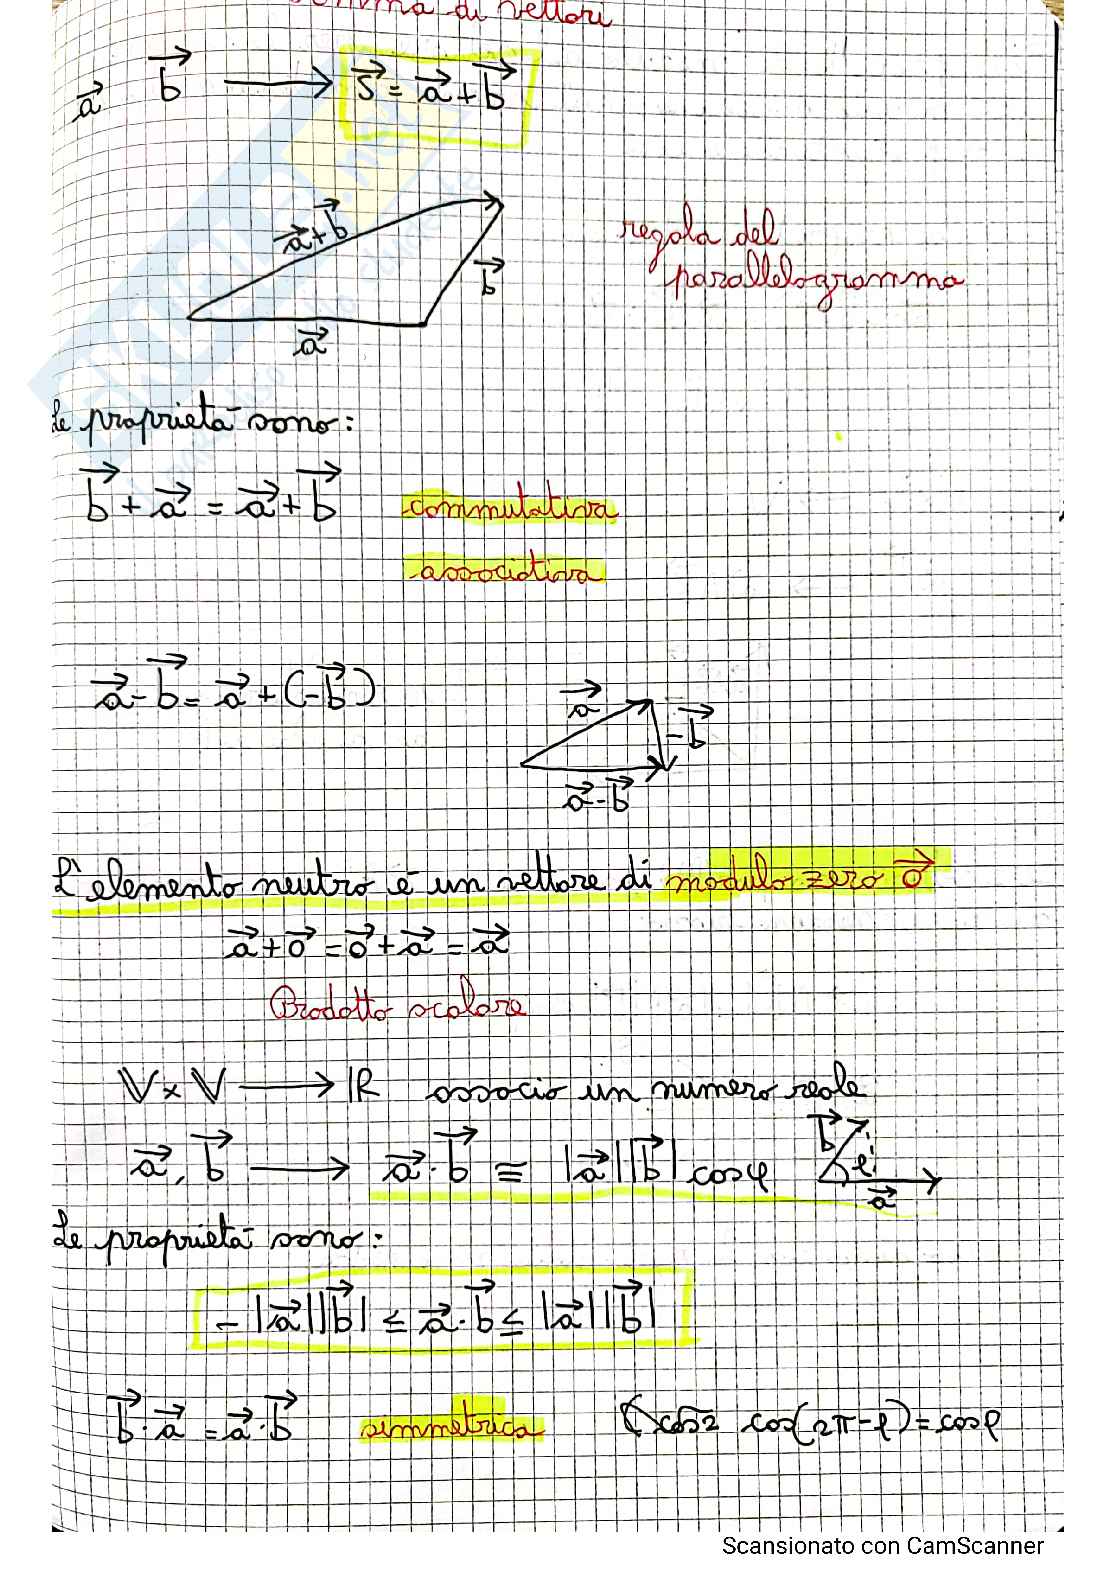 Somma di vettori
a⃗ b⃗ ⟶ s⃗ = a⃗ + b⃗
a⃗+b⃗
b⃗
a⃗
regola del
parallelogramma
Le proprietà sono:
b⃗ + a⃗ = a⃗ + b⃗ commutativa
associativa
a⃗ - b⃗ = a⃗ + (-b⃗)
a⃗
-b⃗
a⃗-b⃗
L'elemento neutro è un vettore di modulo zero 0⃗
a⃗ + 0⃗ = 0⃗ + a⃗ = a⃗
Prodotto scalare
𝕍 x 𝕍 ⟶ ℝ associo un numero reale
a⃗, b⃗ ⟶ a⃗ · b⃗ ≡ |a⃗||b⃗| cosφ
b⃗ φ
a⃗
Le proprietà sono:
- |a⃗||b⃗| ≤ a⃗ · b⃗ ≤ |a⃗||b⃗|
b⃗ · a⃗ = a⃗ · b⃗ simmetrica cos(2π-φ) = cosφ
Scansionato con CamScanner